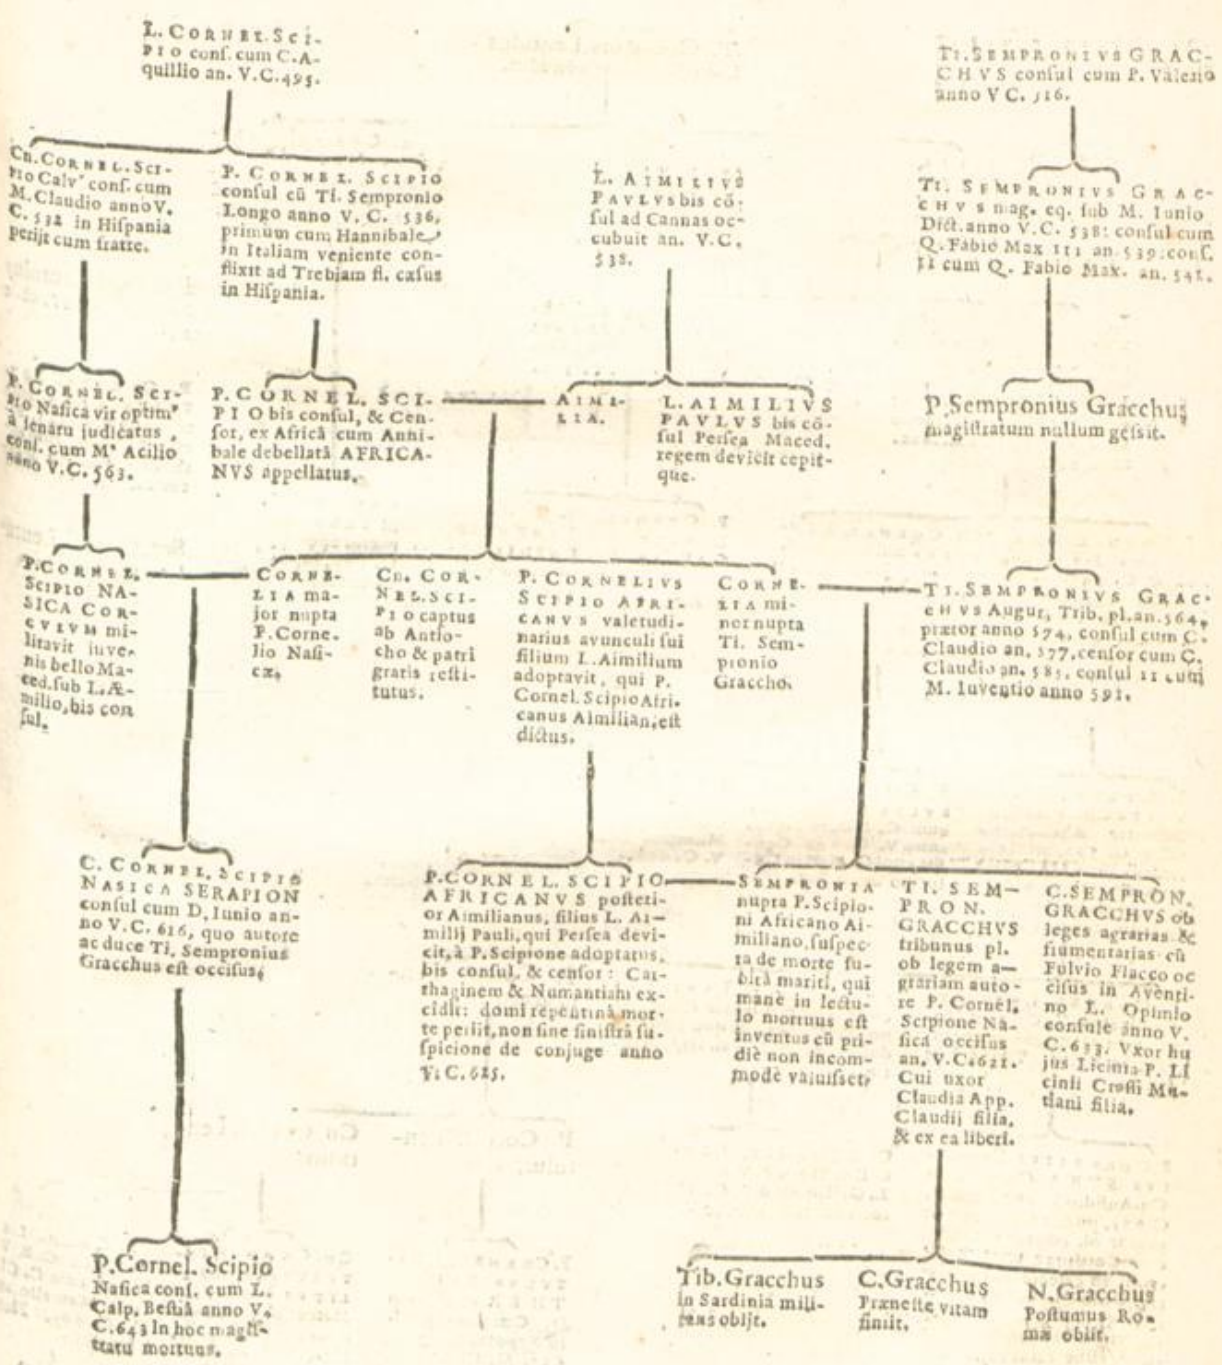 L. CORNEL. SCI-
PIO conſ. cum C. A-
quillio an. V. C. 495.
TI. SEMPRONIVS GRAC-
CHVS conſul cum P. Valerio
anno V C. 516.
Cn. CORNEL. SCI-
PIO Calv' conſ. cum
M. Claudio anno V.
C. 532 in Hiſpania
perijt cum fratre.
P. CORNEL. SCIPIO
conſul cū Ti. Sempronio
Longo anno V. C. 536,
primùm cum Hannibale
in Italiam veniente con-
flixit ad Trebiam fl. cæſus
in Hiſpania.
L. AIMILIVS
PAVLVS bis cō-
ſul ad Cannas oc-
cubuit an. V. C.
538.
TI. SEMPRONIVS GRAC-
CHVS mag. eq. ſub M. Iunio
Dict. anno V. C. 538: conſul cum
Q. Fabio Max III an. 539: conſ.
II cum Q. Fabio Max. an. 541.
P. CORNEL. SCI-
PIO Naſica vir optim'
à ſenatu judicatus,
conſ. cum M' Acilio
anno V. C. 563.
P. CORNEL. SCI-
PIO bis conſul, & Cen-
ſor, ex Africâ cum Anni-
bale debellatâ AFRICA-
NVS appellatus.
AIMI-
LIA.
L. AIMILIVS
PAVLVS bis cō-
ſul Perſea Maced.
regem devicit cepit-
que.
P. Sempronius Gracchus
magiſtratum nullum geſsit.
P. CORNEL.
SCIPIO NA-
SICA COR-
CVLVM mi-
litavit iuve-
nis bello Ma-
ced. ſub L. Æ-
milio, bis con
ſul.
CORNE-
LIA ma-
jor nupta
P. Corne-
lio Naſi-
cæ.
Cn. COR-
NEL. SCI-
PIO captus
ab Antio-
cho & patri
gratis reſti-
tutus.
P. CORNELIVS
SCIPIO AFRI-
CANVS valetudi-
narius avunculi ſui
filium L. Aimilium
adoptavit, qui P.
Cornel. Scipio Afri-
canus Aimilian. eſt
dictus.
CORNE-
LIA mi-
nor nupta
Ti. Sem-
pronio
Graccho.
TI. SEMPRONIVS GRAC-
CHVS Augur, Trib. pl. an. 564,
prætor anno 574, conſul cum C.
Claudio an. 577, cenſor cum C.
Claudio an. 585, conſul II cum
M. Iuventio anno 591.
C. CORNEL. SCIPIO
NASICA SERAPION
conſul cum D. Iunio an-
no V. C. 616, quo autore
ac duce Ti. Sempronius
Gracchus eſt occiſus.
P. CORNEL. SCIPIO
AFRICANVS poſteri-
or Aimilianus, filius L. Ai-
milij Pauli, qui Perſea devi-
cit, à P. Scipione adoptatus,
bis conſul, & cenſor: Car-
thaginem & Numantiam ex-
cidit: domi repentinâ mor-
te periit, non ſine ſiniſtrâ ſu-
ſpicione de conjuge anno
V. C. 625.
SEMPRONIA
nupta P. Scipio-
ni Africano Ai-
miliano, ſuſpec-
ta de morte ſu-
bitâ mariti, qui
manè in lectu-
lo mortuus eſt
inventus cū pri-
diè non incom-
modè valuiſſet.
TI. SEM-
PRON.
GRACCHVS
tribunus pl.
ob legem a-
grariam auto-
re P. Cornel.
Scipione Na-
ſicâ occiſus
an. V. C. 621.
Cui uxor
Claudia App.
Claudij filia,
& ex ea liberi.
C. SEMPRON.
GRACCHVS ob
leges agrarias &
frumentarias cū
Fulvio Flacco oc
ciſus in Aventi-
no L. Opimio
conſule anno V.
C. 633. Vxor hu
jus Licinia P. Li
cinii Craſſi Mu-
tiani filia.
P. Cornel. Scipio
Naſica conſ. cum L.
Calp. Beſtiâ anno V.
C. 643 In hoc magiſ-
tratu mortuus.
Tib. Gracchus
in Sardinia mili-
tans obijt.
C. Gracchus
Præneſte vitam
finiit.
N. Gracchus
Poſtumus Ro-
mæ obiit.